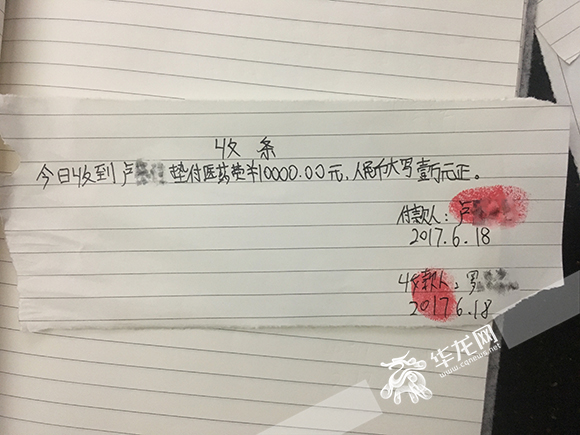 收条
今日收到卢 垫付医药费¥10000.00元,人民币大写壹万元正。
付款人:卢
2017.6.18
收款人:罗
2017.6.18
华龙网
www.cqnews.net